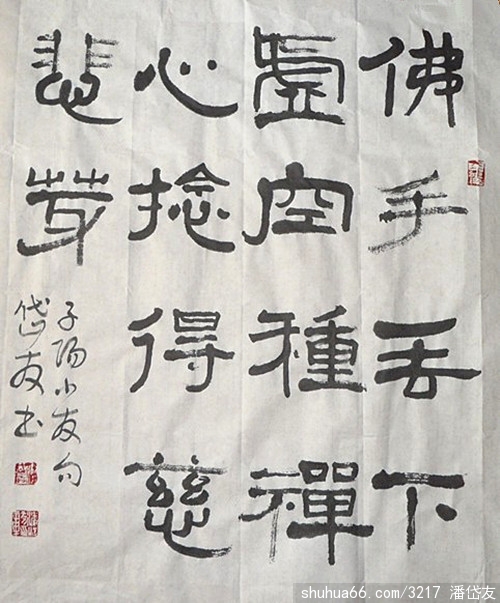 佛手丢下
虚空種禪
心捻得慈
悲芽
子陽小友句
岱友书
shuhua66.com/3217 潘岱友